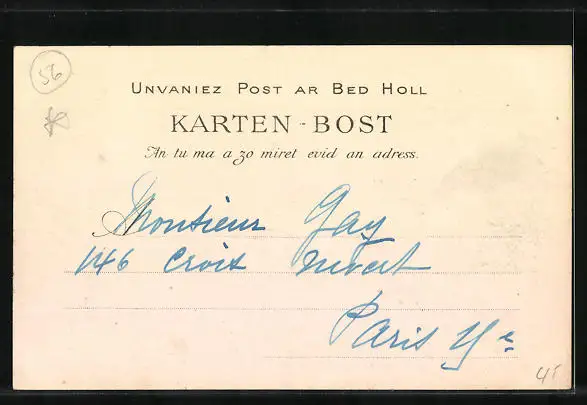 56
UNVANIEZ POST AR BED HOLL
KARTEN-BOST
An tu ma a zo miret evid an adress.
Monsieur Gay
146 Croix Nivert
Paris